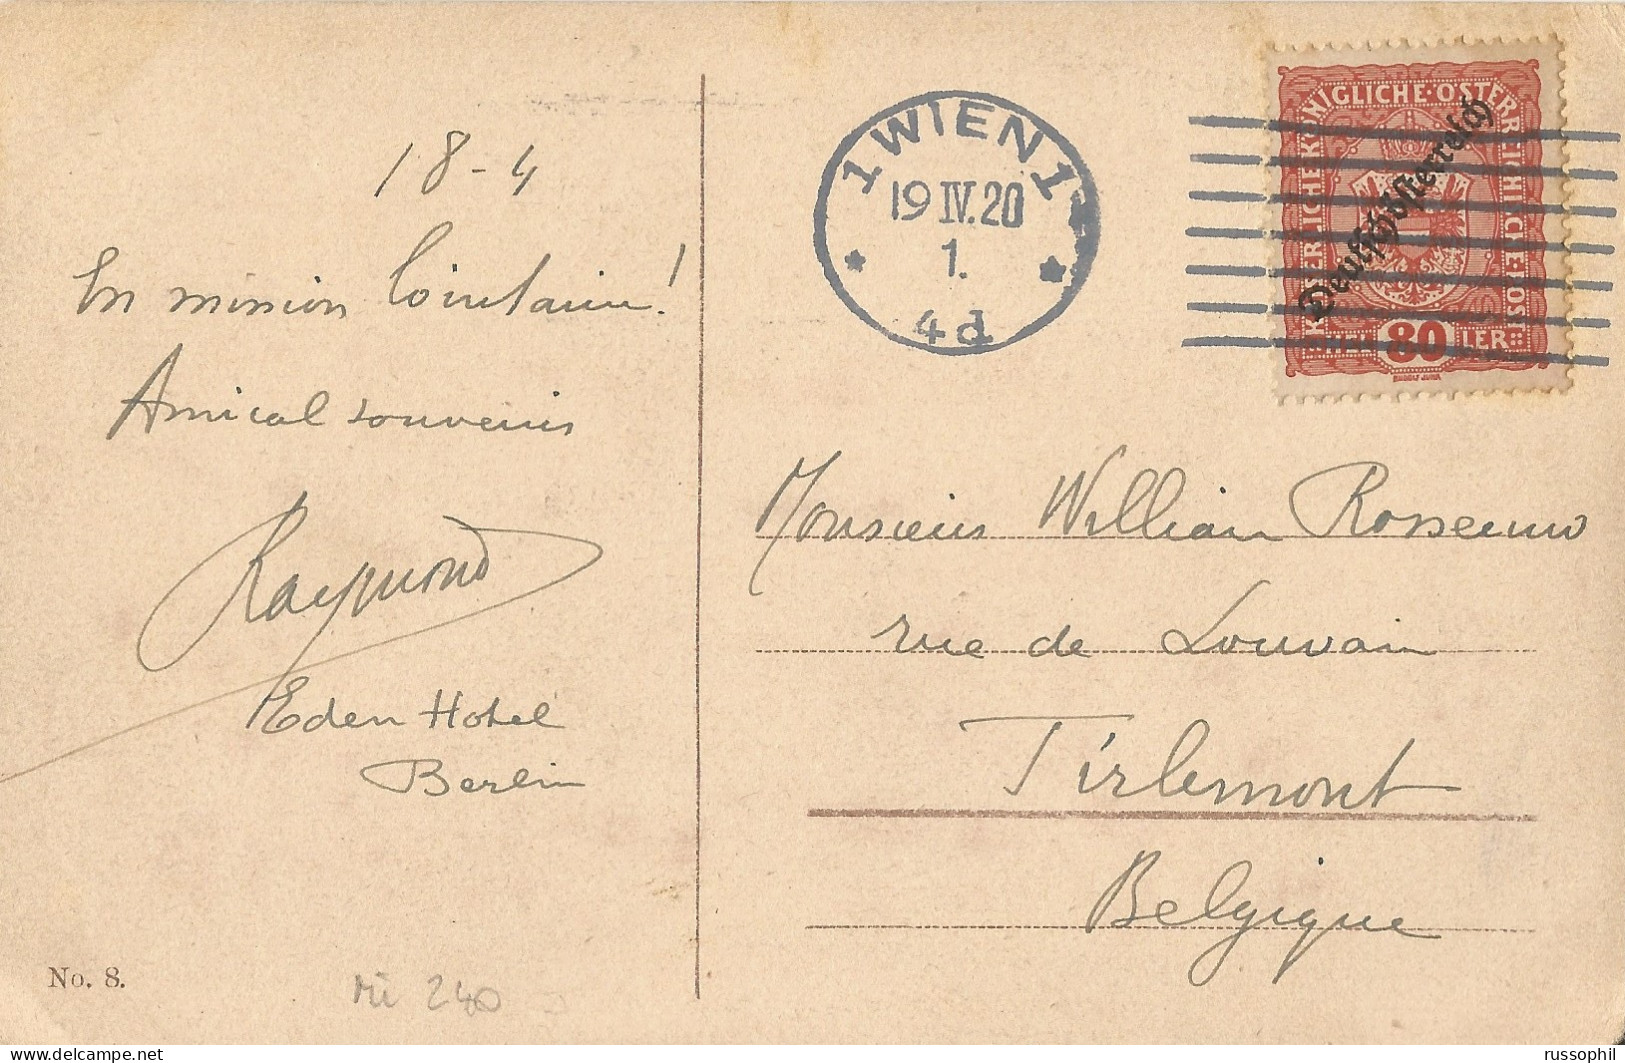 18-4
En mission lointaine!
Amical souvenir
Raymond
Eden Hotel
Berlin
No. 8.
Mi 240
1 WIEN 1
19 IV. 20
1.
4d
KAISERLICHE KÖNIGLICHE·ÖSTERREICHISCHE·POST
Deutschösterreich
HEL 80 LER
RUDOLF JUNK
Monsieur William
rue de Louvain
Tirlemont
Belgique
russophil